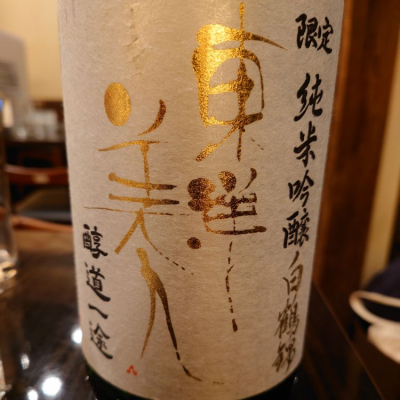 限定 純米吟醸 白鶴錦
東洋
美人
醇道一途